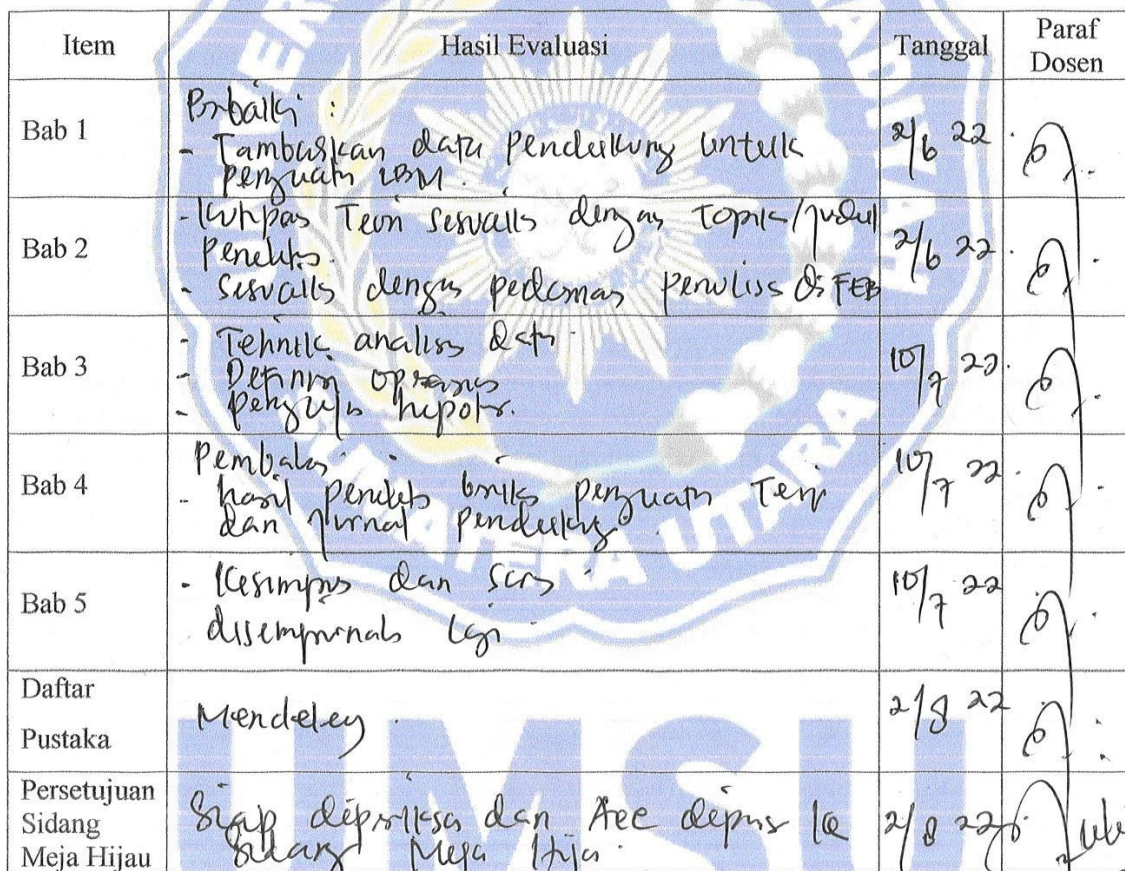 Item Hasil Evaluasi Tanggal Paraf Dosen
Bab 1
Perbaiki :
- Tambahkan data pendukung untuk
penguatan LBM.
2/6 22
Bab 2
- Kutipan Teori sesuaik dengan Topik/judul
Penelitian.
- Sesuaik dengan pedoman penulisan di FEB
2/6 22
Bab 3
- Tehnik analisis data
- Definisi operasional
- pengujian hipotesis.
10/7 22.
Bab 4
Pembahasan
- hasil penelitian berikan penguatan Teori
dan jurnal pendukung
10/7 22
Bab 5
- Kesimpulan dan saran
disempurnakan lagi
10/7 22
Daftar
Pustaka
Mendeley.
2/8 22
Persetujuan
Sidang
Meja Hijau
Siap diperiksa dan Acc ke
Sidang Meja Hijau.
2/8 22
SUMATERA UTARA
UMSU